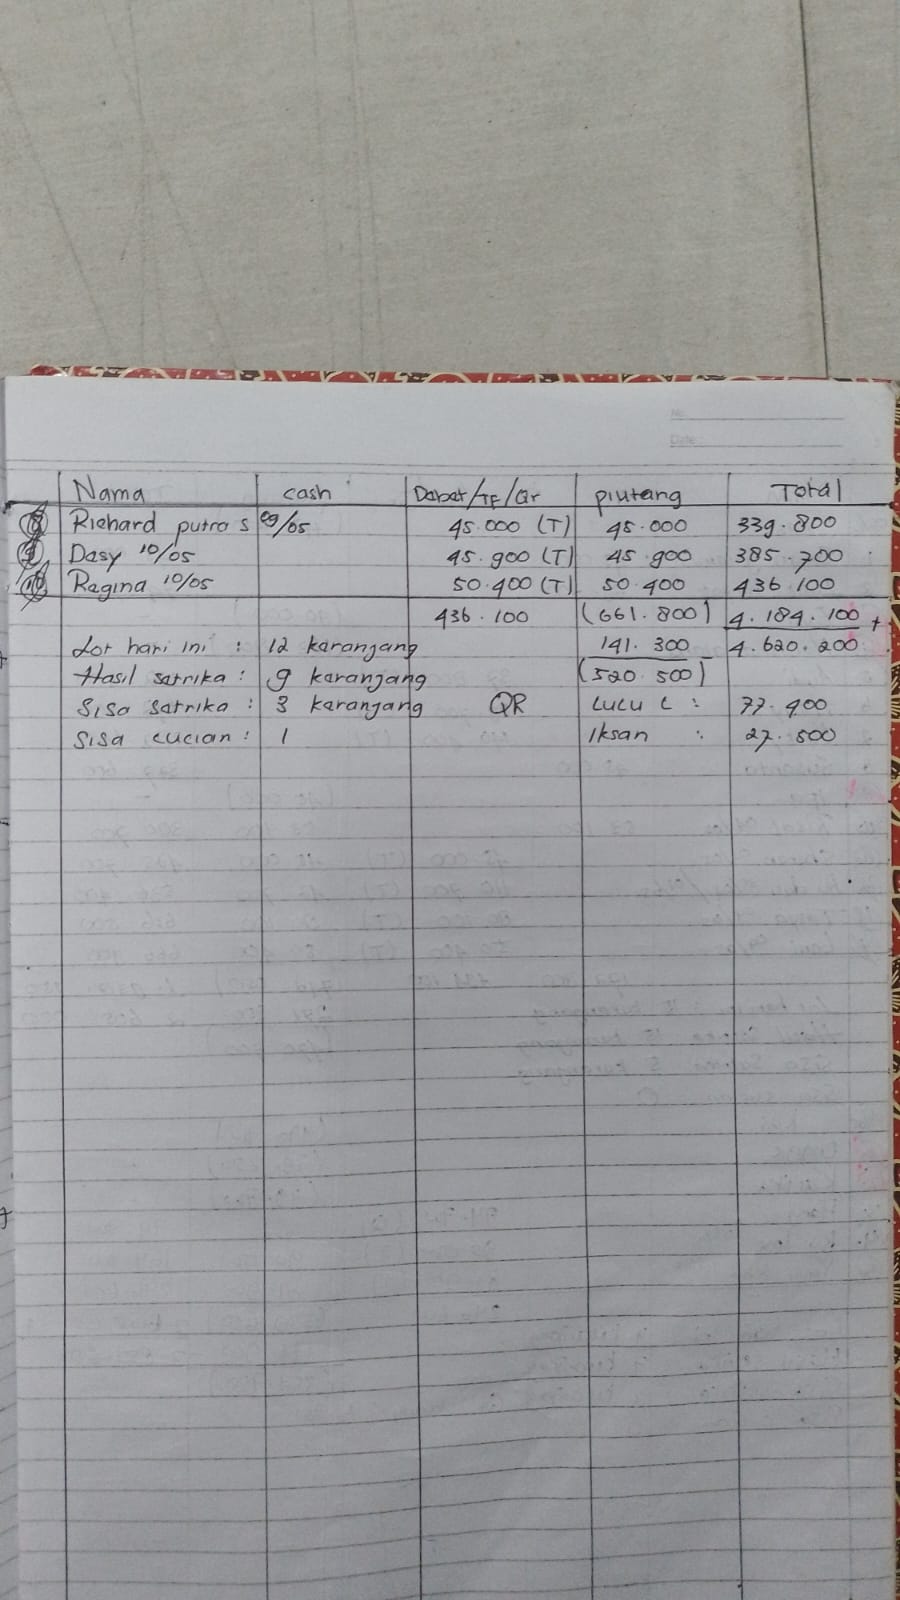 No.
Date:
Nama cash Debet/TF/Qr piutang Total
Richard putra s 09/05 45.000 (T) 45.000 339.800
Desy 10/05 45.900 (T) 45.900 385.700
Regina 10/05 50.400 (T) 50.400 436.100
436.100 (661.800) 4.184.100 +
Lor hari ini : 12 keranjang 141.300 - 4.620.200
Hasil setrika : 9 keranjang (520.500)
Sisa setrika : 3 keranjang QR Lucu L : 77.400
Sisa cucian : 1 Iksan : 27.500